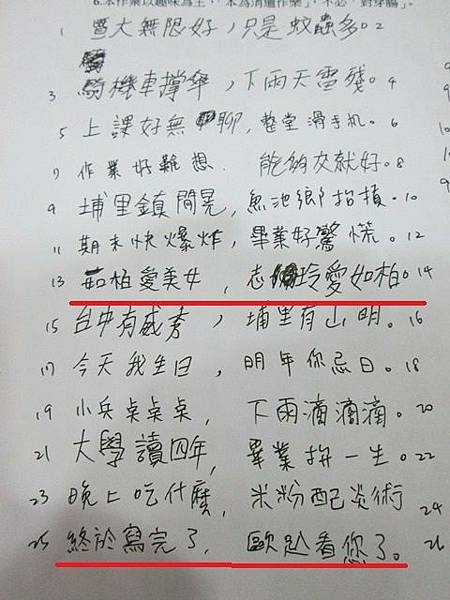 6.本作業以趣味為主,「本為消遣作樂」,不必「對穿腸」。
1 暨大無限好,只是蚊蟲多。2
3 騎機車撐傘,下雨天雪殘。4
5 上課好無聊,整堂滑手机。6
7 作業好難想. 能夠交就好。8
9 埔里鎮閒晃,魚池鄉。10
11 期末快爆炸,畢業好驚慌。12
13 如柏愛美女,志玲愛如柏。14
15 台中有威秀,埔里有山明。16
17 今天我生日,明年你忌日。18
19 小兵桌桌桌,下雨滴滴滴。20
21 大學讀四年,畢業拚一生。22
23 晚上吃什麼,米粉配炎術 24
25 終於寫完了,歐趴看您了。26